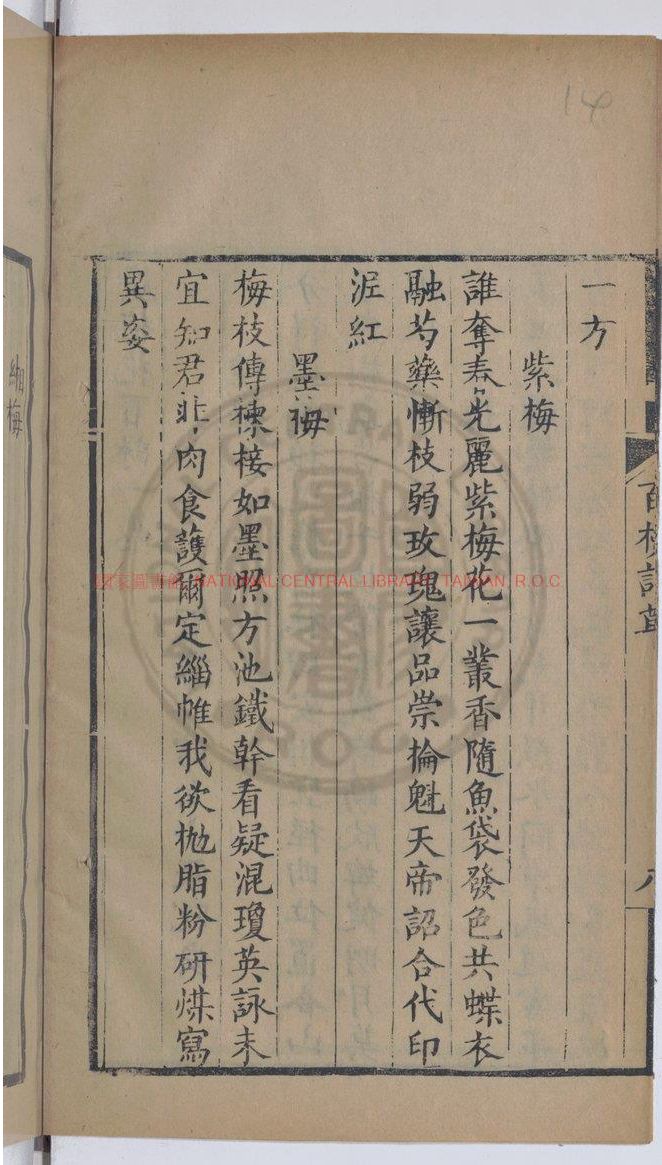 14
百梅詩
八
一方
紫梅
誰奪春光麗紫梅花一叢香隨魚袋發色共蝶衣
融芍藥慚枝弱玫瑰讓品崇掄魁天帝詔合代印
泥紅
墨梅
梅枝傳楝接如墨照方池鐵幹看疑混瓊英詠未
宜知君非肉食護爾定緇帷我欲拋脂粉研煤寫
異姿
緗梅
國家圖書館 NATIONAL CENTRAL LIBRARY, TAIWAN, R.O.C